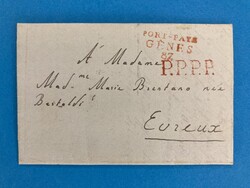 PORT-PAYÉ
GÊNES
87
P.P.P.P.
À Madame
Mad.me Marie Brentano née
Evreux